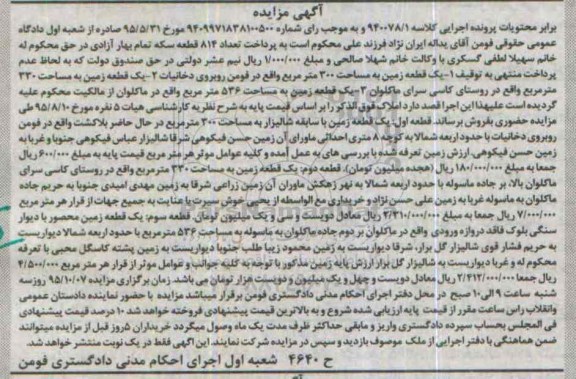 آگهی مزایده
برابر محتویات پرونده اجرایی کلاسه ۹۴۰۰۷۸/۱ و به موجب رای شماره ۹۴۰۹۹۷۱۸۳۸۱۰۰۵۰۰ مورخ ۹۵/۵/۳۱ صادره از شعبه اول دادگاه
عمومی حقوقی فومن آقای یداله ایران نژاد فرزند علی محکوم است به پرداخت تعداد ۸۱۴ قطعه سکه تمام بهار آزادی در حق محکوم له
خانم سهیلا لطفی گسکری با وکالت خانم شهلا صالحی و مبلغ ۱/۰۰۰/۰۰۰ ریال نیم عشر دولتی در حق صندوق دولت که به لحاظ عدم
پرداخت منتهی به توقیف ۱-یک قطعه زمین به مساحت ۳۰۰ متر مربع واقع در فومن روبروی دخانیات ۲-یک قطعه زمین به مساحت ۳۳۰
مترمربع واقع در روستای کاسی سرای ماکلوان ۳-یک قطعه زمین به مساحت ۵۳۶ متر مربع واقع در ماکلوان از مالکیت محکوم علیه
گردیده است علیهذا این اجرا قصد دارد املاک فوق الذکر را بر اساس قیمت پایه به شرح نظریه کارشناسی هیات ۵ نفره مورخ ۹۵/۸/۱۰ طی
مزایده حضوری بفروش برساند. قطعه اول: یک قطعه زمین با سابقه شالیزار به مساحت ۳۰۰ مترمربع در حال حاضر بلاکشت واقع در فومن
روبروی دخانیات با حدود اربعه شمالا به کوچه ۸ متری احداثی ماورای آن زمین حسن فیکوهی شرقا شالیزار عباس فیکوهی جنوبا و غربا به
زمین حسن فیکوهی. ارزش زمین تعرفه شده با بررسی های به عمل آمده و کلیه عوامل موثر هر متر مربع قیمت پایه به مبلغ ۶۰۰/۰۰۰ ریال
جمعا به مبلغ ۱۸۰/۰۰۰/۰۰۰ ریال (هجده میلیون تومان). قطعه دوم: یک قطعه زمین به مساحت ۳۳۰ مترمربع واقع در روستای کاسی سرای
ماکلوان بالا، بر جاده ماسوله با حدود اربعه شمالا به نهر زهکش ماورای آن زمین زراعی شرقا به زمین مهدی امیدی جنوبا به حریم جاده
ماکلوان به ماسوله غربا به زمین علی حسن نژاد و خریداری مع الواسطه از یحیی خوش سیرت با عنایت به جمیع جهات از قرار هر متر مربع
۷/۰۰۰/۰۰۰ ریال جمعا به مبلغ ۲/۳۱۰/۰۰۰/۰۰۰ ریال معادل دویست و سی و یک میلیون تومان. قطعه سوم: یک قطعه زمین محصور با دیوار
سنگی بلوک فاقد دروازه ورودی واقع در ماکلوان بر دوم جاده ماکلوان به ماسوله به مساحت ۵۳۶ مترمربع با حدود اربعه شمالا دیواریست
به حریم فشار قوی شالیزار گل برار، شرقا دیواریست به زمین محمود زیبا طلب جنوبا دیواریست به زمین پشته کاسگل محبی با تعرفه
محکوم له و غربا دیواریست به شالیزار گل برار ارزش پایه زمین مذکور با توجه به کلیه جوانب و عوامل موثر از قرار هر متر مربع ۴/۵۰۰/۰۰۰
ریال جمعا ۲/۴۱۲/۰۰۰/۰۰۰ ریال معادل دویست و چهل و یک میلیون و دویست هزار تومان می باشد. زمان برگزاری مزایده ۹۵/۱۰/۰۷ روز سه
شنبه ساعت ۹ الی ۱۰ صبح در محل دفتر اجرای احکام مدنی دادگستری فومن برقرار میباشد مزایده با حضور نماینده دادستان عمومی
وانقلاب راس ساعت مقرر از قیمت پایه ارزیابی شده شروع و به بالاترین قیمت پیشنهادی فروخته خواهد شد ۱۰ درصد قیمت پیشنهادی
فی المجلس بحساب سپرده دادگستری واریز و مابقی حداکثر ظرف مدت یک ماه وصول میگردد خریداران ۵ روز قبل از مزایده میتوانند
ضمن هماهنگی با دفتر اجرایی از ملک موصوف بازدید و سپس در مزایده شرکت نمایند. این آگهی فقط در یک نوبت منتشر خواهد شد.
ح ۴۶۴۰ شعبه اول اجرای احکام مدنی دادگستری فومن